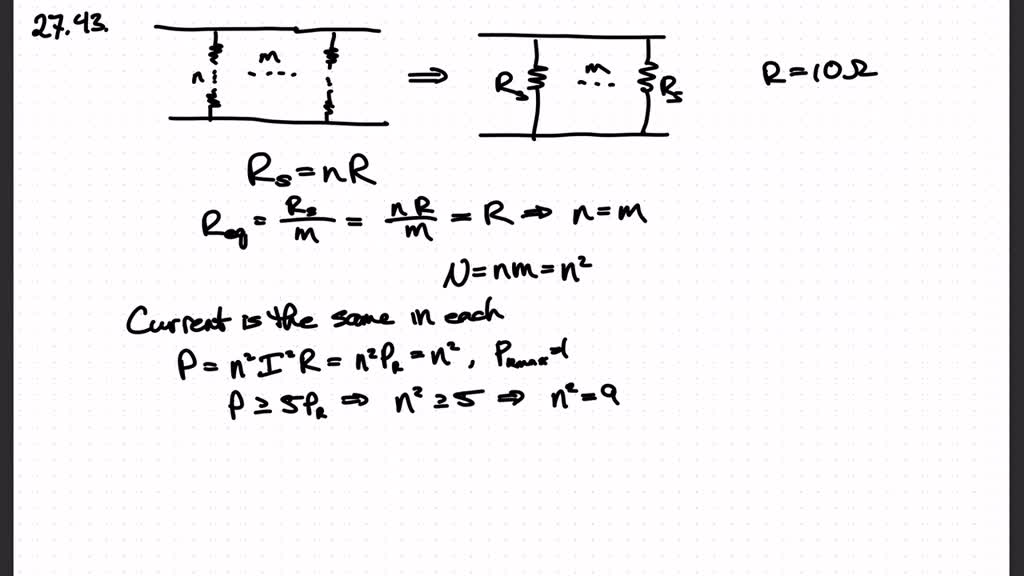 27.43.
n m ⇒ Rs m Rs R = 10Ω
Rs = nR
Req = Rs/m = nR/m = R ⇒ n = m
N = nm = n²
Current is the same in each
P = n²I²R = n²P_R = n², P_Rmax = 1
P ≥ 5P_R ⇒ n² ≥ 5 ⇒ n² = 9